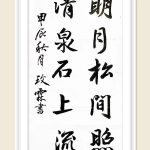 明月松间照
清泉石上流
甲辰秋月 玫霖书